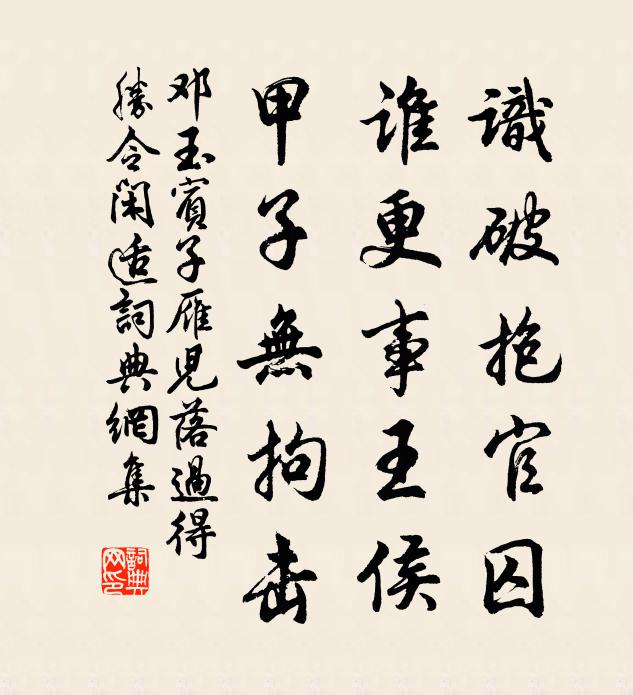 識破抱官囚
誰更事王侯
甲子無拘击
邓玉賓子雁児落過得
勝令閑适詞典網集
詞典
网印